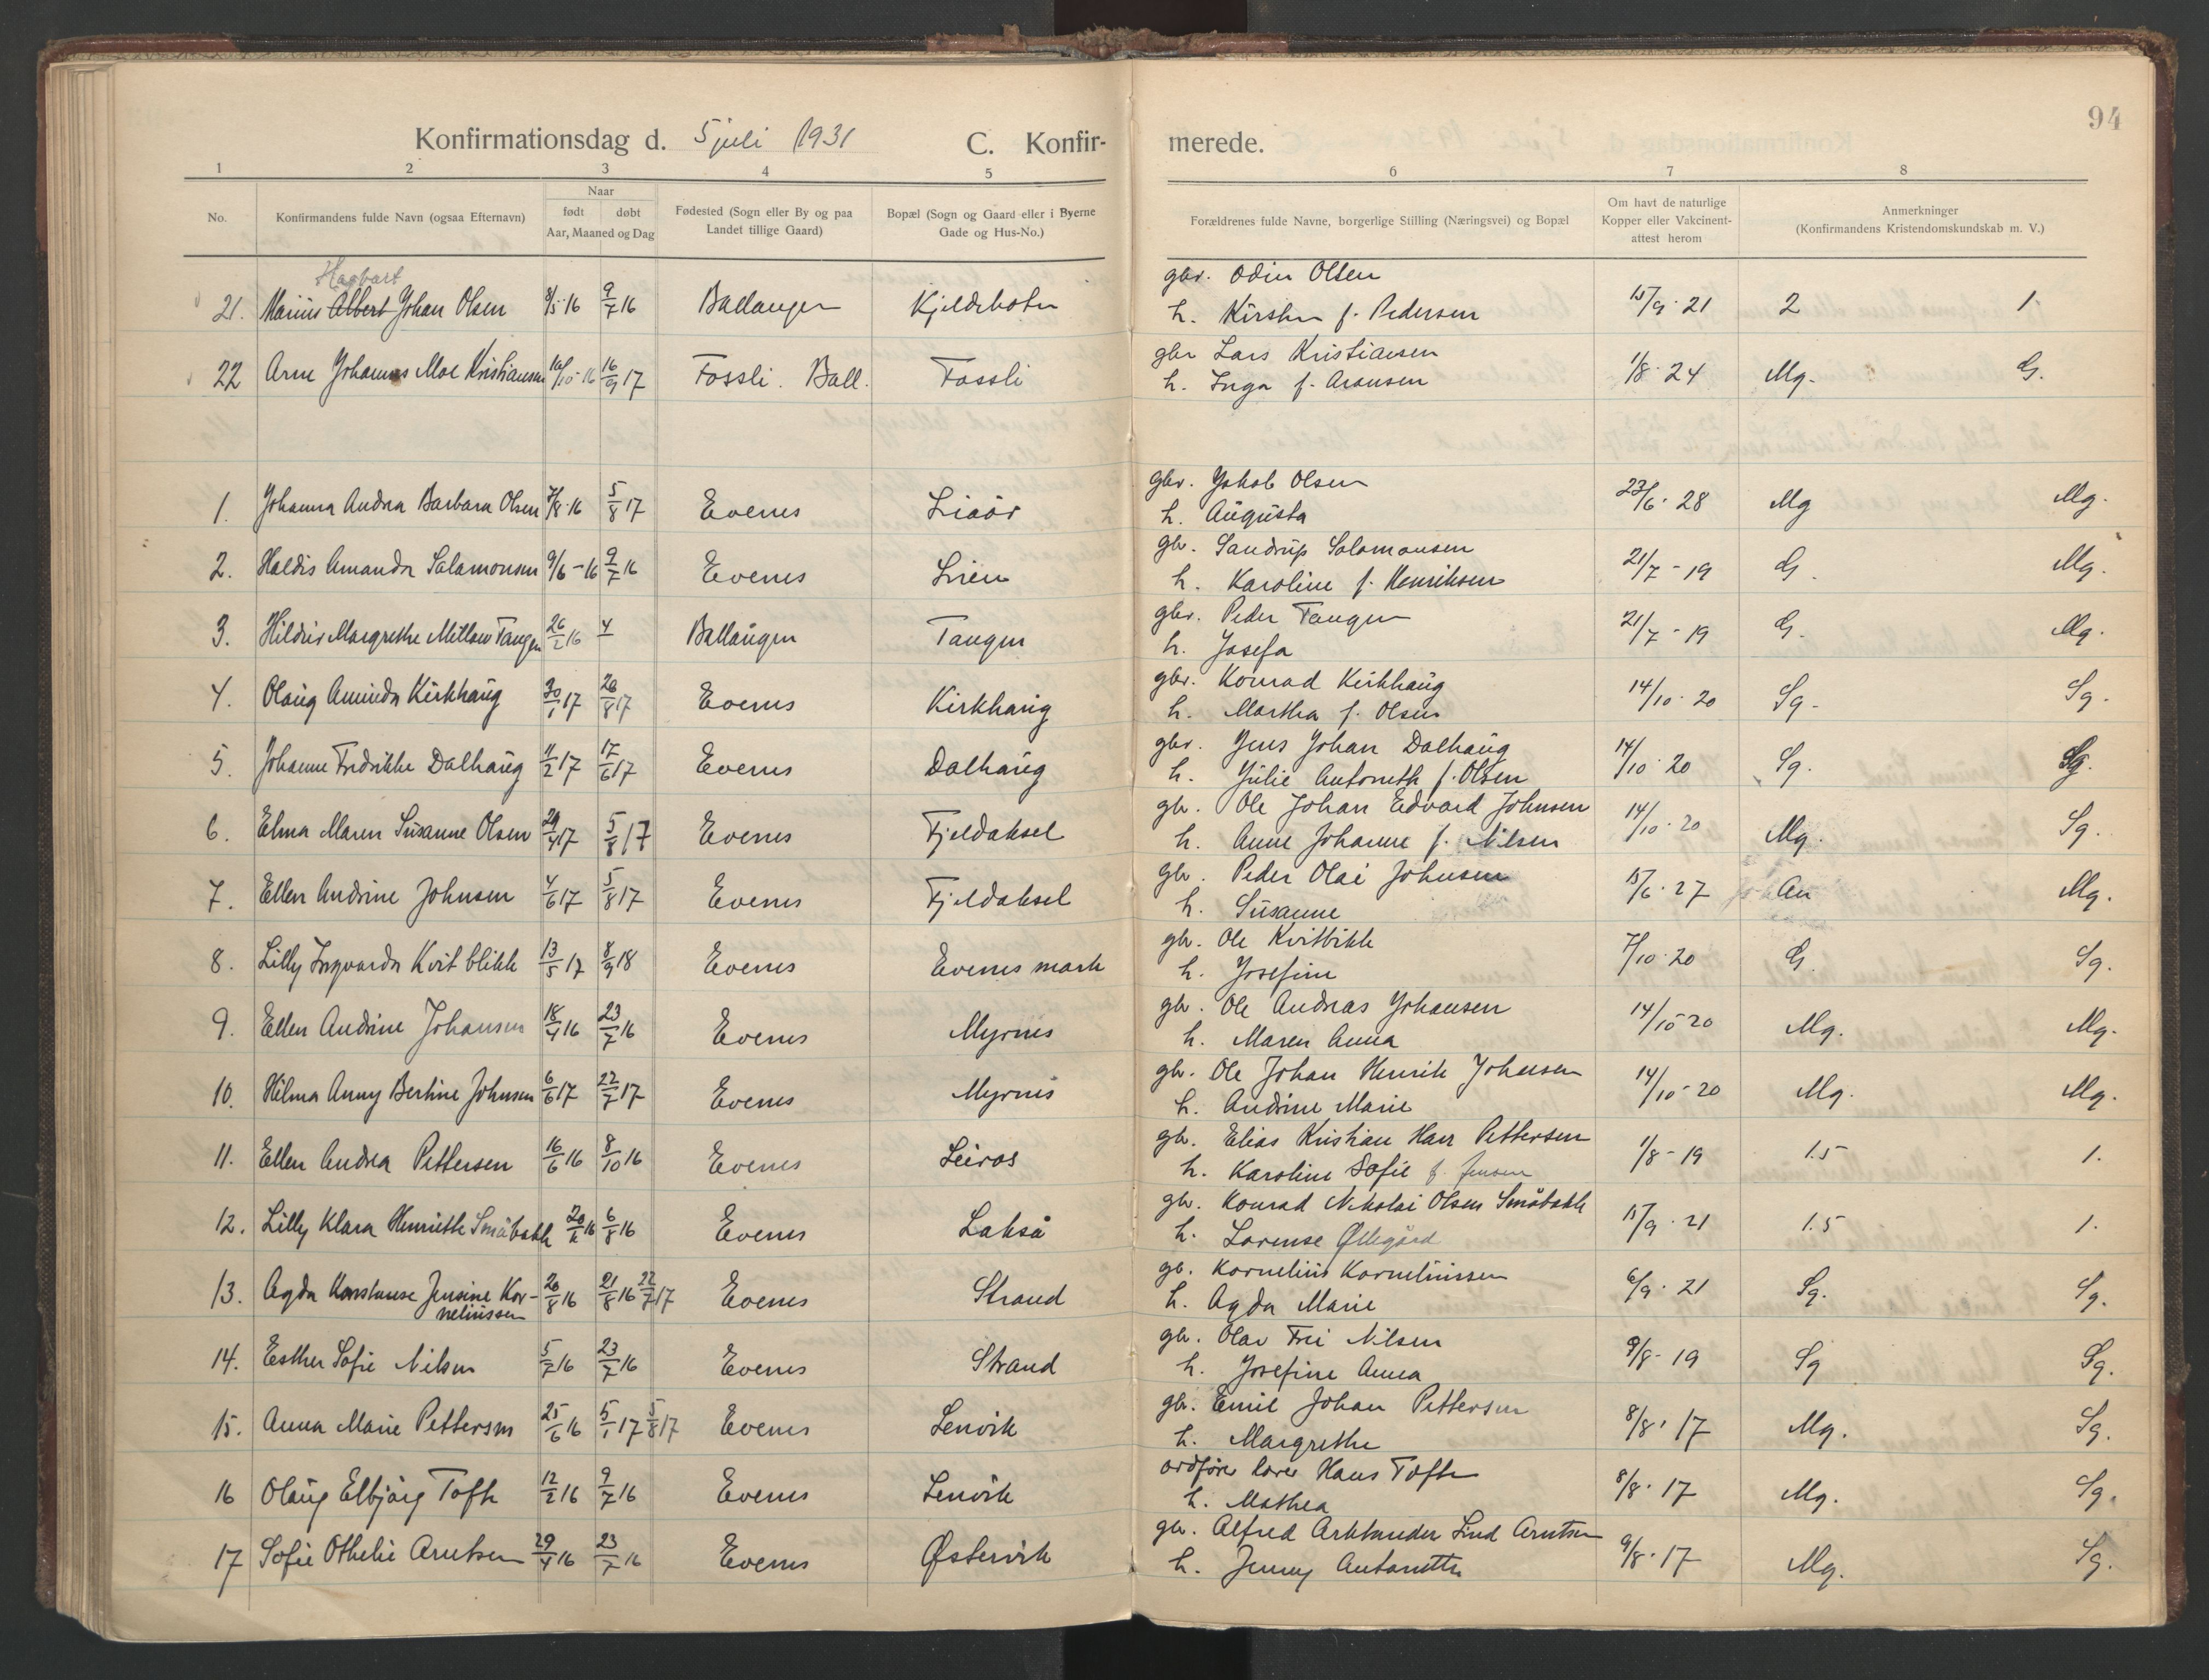 94
Konfirmationsdag d. 5 juli 1931 C. Konfir- merede.
1 2 3 4 5 6 7 8
No.
Konfirmandens fulde Navn (ogsaa Efternavn)
Naar
født døbt
Aar, Maaned og Dag
Fødested (Sogn eller By og paa
Landet tillige Gaard)
Bopæl (Sogn og Gaard eller i Byerne
Gade og Hus-No.)
Forældrenes fulde Navne, borgerlige Stilling (Næringsvei) og Bopæl
Om havt de naturlige
Kopper eller Vakcinent-
attest herom
Anmerkninger
(Konfirmandens Kristendomskundskab m. V.)
Hagbart
gbr. Odin Olsen
21. Marius Albert Johan Olsen 8/5 16 9/7 16 Ballangen Kjeldebotn 15/9 · 21 2 1.
h. Kirsten f. Pedersen
gbr Lars Kristiansen
22 Arne Johannes Moe Kristiansen 10/10 - 16 16/9 17 Fossli. Ball. Fossli 1/8 · 24 Mg. G.
h. Inga f. Aronsen
gbr. Jakob Olsen
1. Johanna Andrea Barbara Olsen 7/8 16 5/8 17 Evenes Liaör 23/6 · 28 Mg Mg.
h. Augusta
gbr. Sandrup Salomonsen
2. Haldis Amanda Salamonsen 9/6 - 16 9/7 16 Evenes Lien 21/7 - 19 G. Mg.
h. Karoline f. Henriksen
gbr. Peder Tangen
3. Margrethe Tangen 26/2 16 4 Ballangen Tangen 21/7 - 19 G. Mg.
h. Josefa
gbr. Konrad Kirkhaug
4. Olaug Aminda Kirkhaug 30/1 17 26/8 17 Evenes Kirkhaug 14/10 · 20 Sg. Sg.
h. Martha f. Olsen
gbr. Jens Johan Dalhaug
5. Johanne Fredrikke Dalhaug 11/2 17 17/6 17 Evenes Dalhaug 14/10 · 20 Sg. Sg.
h. Julie Antonette f. Olsen
gbr. Ole Johan Edvard Johnsen
6. Elma Maren Susanne Olsen 29/4 17 5/8 17 Evenes Fjeldaksel 14/10 · 20 Mg. Sg.
h. Anne Johanne f. Nilsen
gbr. Peder Olai Johnsen
7. Ellen Andrine Johnsen 4/6 17 5/8 17 Evenes Fjeldaksel 15/6 · 27 An Mg.
h. Susanne
gbr. Ole Kvitblikk
8. Lilly Ingvarda Kvitblikk 13/5 17 8/9 18 Evenes Evenesmark 7/10 · 20 G. Sg.
h. Josefine
gbr. Ole Andreas Johansen
9. Ellen Andrine Johansen 18/4 16 23/7 16 Evenes Myrnes 14/10 - 20 Mg. Mg.
h. Maren Anna
gbr. Ole Johan Henrik Johnsen
10. Hilma Anny Bertine Johnsen 6/6 17 22/7 17 Evenes Myrnes 14/10 - 20 Mg. Mg.
h. Andrine Marie
gbr. Elias Kristian Hans Pettersen
11. Ellen Andrea Pettersen 16/6 16 8/10 16 Evenes Leiros 1/8 - 19 1.5 1.
h. Karoline Sofie f. Jensen
gbr. Konrad Nikolai Olsen Småbakk
12. Lilly Klara Henriette Småbakk 20/6 16 6/8 16 Evenes Lakså 15/9 · 21 1.5 1.
h. Lorense Øllegård
gb. Kornelius Korneliussen
13. Agda Konstanse Jensine Kor- 20/8 16 21/8 16 22/7 17 Evenes Strand 6/9 · 21 Sg. Sg.
neliussen
h. Agda Marie
gbr. Olav Frei Nilsen
14. Esther Sofie Nilsen 5/7 16 23/7 16 Evenes Strand 9/8 - 19 Sg Sg.
h. Josefine Anna
gbr. Emil Johan Pettersen
15. Anna Marie Pettersen 25/6 16 5/1 17 5/8 17 Evenes Lenvik 8/8 · 17 Mg. Sg.
h. Margrethe
ordfører lærer Hans Toft
16 Olaug Elbjørg Toft 12/2 16 9/7 16 Evenes Lenvik 8/8 · 17 Mg. Sg.
h. Mathea
gbr. Alfred Lind Arntsen
17 Sofie Othelie Arntsen 29/4 16 23/7 16 Evenes Østervik 9/8 · 17 Mg. Sg.
h. Jenny Antonette